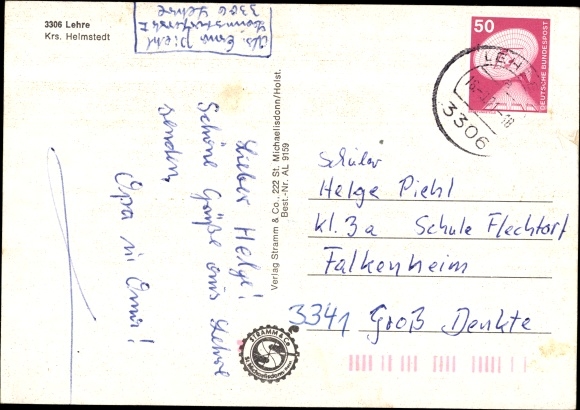 3306 Lehre
Krs. Helmstedt
Abs. Erna Piehl
3306 Lehre
50
DEUTSCHE BUNDESPOST
LEH
3306
Lieber Helge!
Schöne Grüße aus Lehre
senden
Opa u Omi!
Verlag Stramm & Co., 222 St. Michaelisdonn/Holst.
Best.-Nr. AL 9159
Schüler
Helge Piehl
Kl. 3a Schule Flechtorf
Falkenheim
3341 Groß Denkte
STRAMM & Co
St. Michaelisdonn